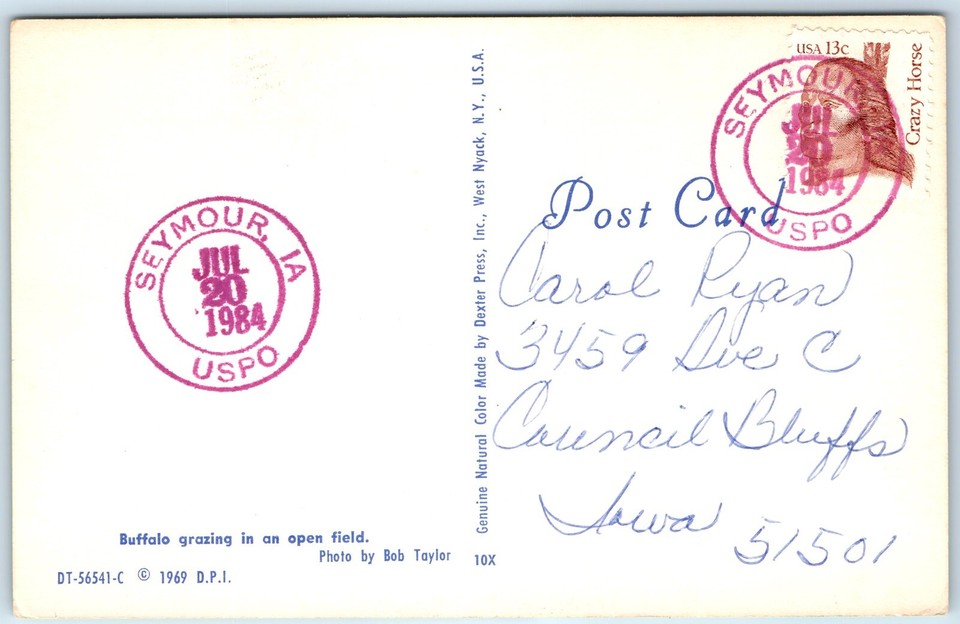 SEYMOUR, IA
JUL
20
1984
USPO
Buffalo grazing in an open field.
Photo by Bob Taylor
DT-56541-C © 1969 D.P.I.
Genuine Natural Color Made by Dexter Press, Inc., West Nyack, N.Y., U.S.A.
10X
USA 13c
Crazy Horse
SEYMOUR
JUL
20
1984
USPO
Post Card
Carol Ryan
3459 Ave C
Council Bluffs
Iowa 51501